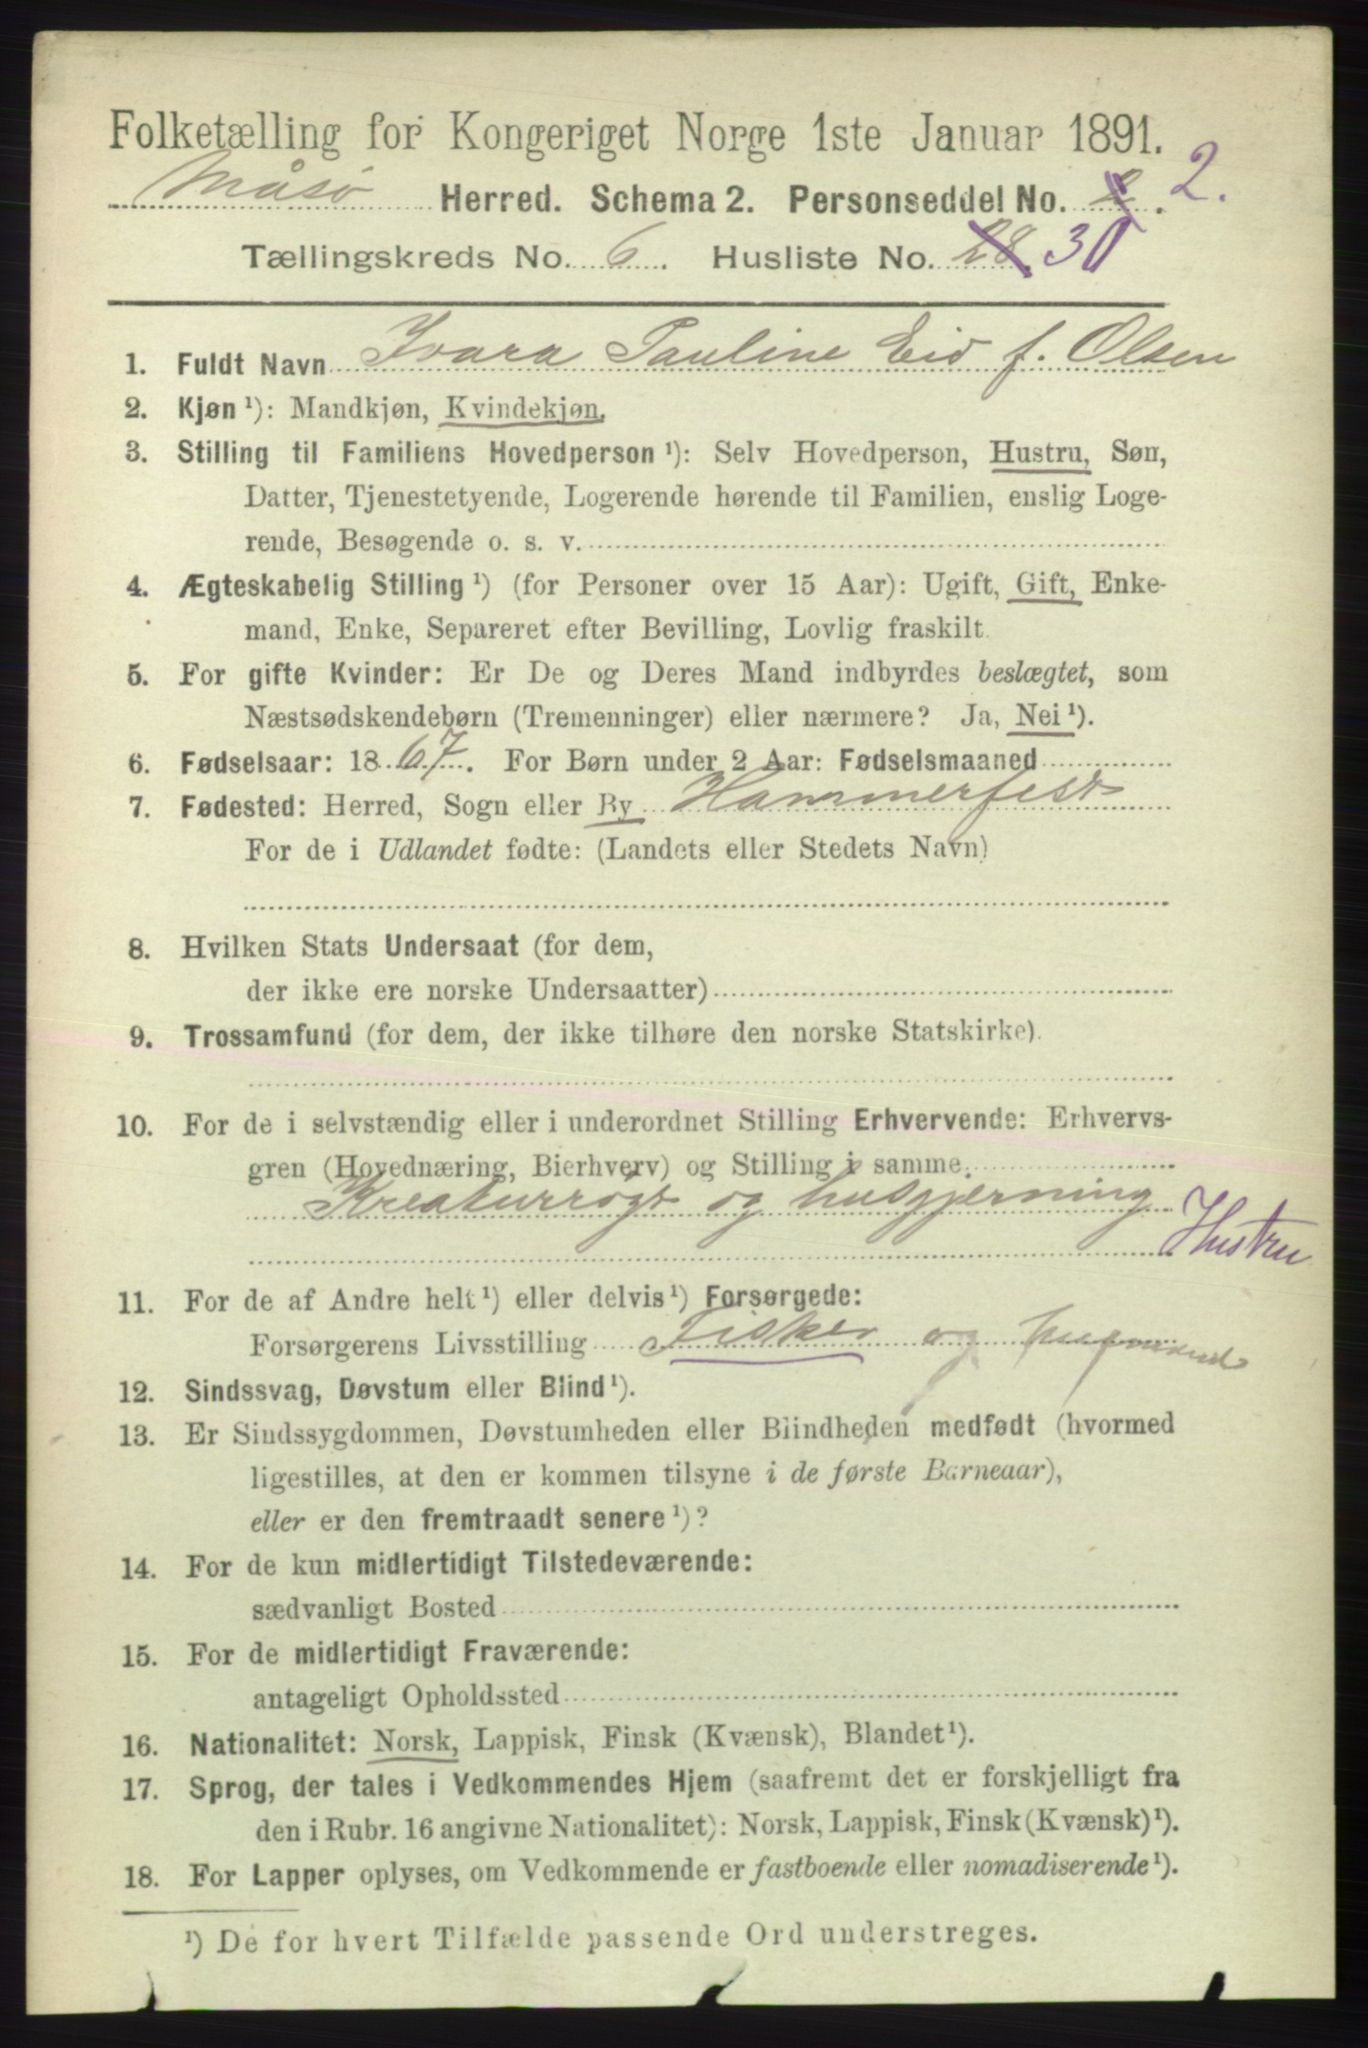 Folketælling for Kongeriget Norge 1ste Januar 1891.
Måsø Herred. Schema 2. Personseddel No. 2. 2.
Tællingskreds No. 6. Husliste No. 28. 30
1. Fuldt Navn Ivara Pauline Eid f. Olsen
2. Kjøn ¹): Mandkjøn, Kvindekjøn.
3. Stilling til Familiens Hovedperson ¹): Selv Hovedperson, Hustru, Søn,
Datter, Tjenestetyende, Logerende hørende til Familien, enslig Loge-
rende, Besøgende o. s. v.
4. Ægteskabelig Stilling ¹) (for Personer over 15 Aar): Ugift, Gift, Enke-
mand, Enke, Separeret efter Bevilling, Lovlig fraskilt.
5. For gifte Kvinder: Er De og Deres Mand indbyrdes beslægtet, som
Næstsødskendebørn (Tremenninger) eller nærmere? Ja, Nei ¹).
6. Fødselsaar: 1867. For Børn under 2 Aar: Fødselsmaaned
7. Fødested: Herred, Sogn eller By Hammerfest
For de i Udlandet fødte: (Landets eller Stedets Navn)
8. Hvilken Stats Undersaat (for dem,
der ikke ere norske Undersaatter)
9. Trossamfund (for dem, der ikke tilhøre den norske Statskirke).
10. For de i selvstændig eller i underordnet Stilling Erhvervende: Erhvervs-
gren (Hovednæring, Bierhverv) og Stilling i samme.
Kreaturrøgt og husgjerning
Hustru
11. For de af Andre helt ¹) eller delvis ¹) Forsørgede:
Forsørgerens Livsstilling Fisker og
12. Sindssvag, Døvstum eller Blind ¹).
13. Er Sindssygdommen, Døvstumheden eller Blindheden medfødt (hvormed
ligestilles, at den er kommen tilsyne i de første Barneaar),
eller er den fremtraadt senere ¹)?
14. For de kun midlertidigt Tilstedeværende:
sædvanligt Bosted
15. For de midlertidigt Fraværende:
antageligt Opholdssted
16. Nationalitet: Norsk, Lappisk, Finsk (Kvænsk), Blandet ¹).
17. Sprog, der tales i Vedkommendes Hjem (saafremt det er forskjelligt fra
den i Rubr. 16 angivne Nationalitet): Norsk, Lappisk, Finsk (Kvænsk) ¹).
18. For Lapper oplyses, om Vedkommende er fastboende eller nomadiserende ¹).
¹) De for hvert Tilfælde passende Ord understreges.